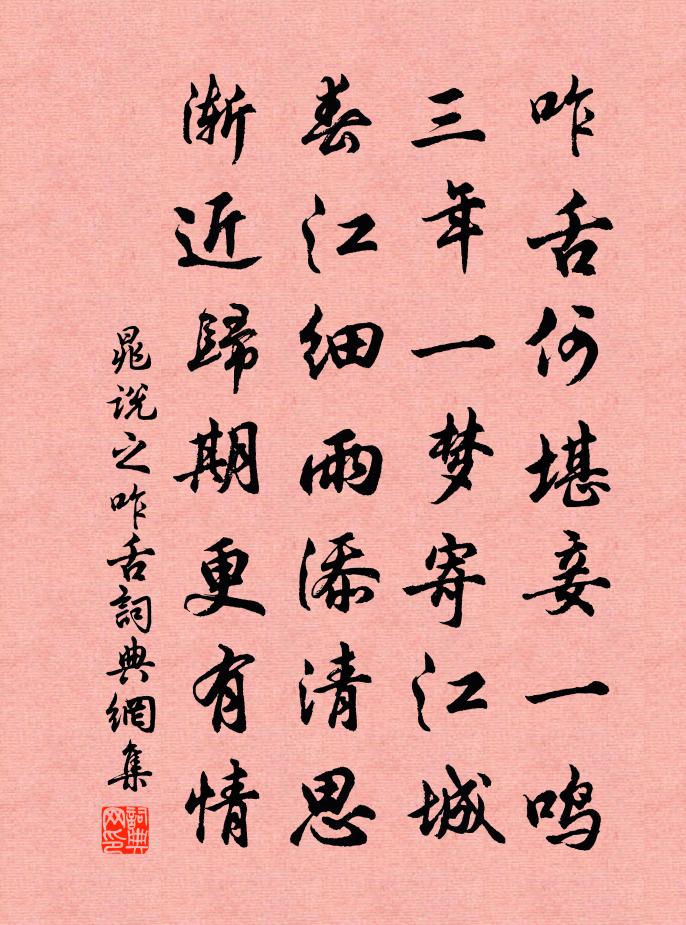 咋舌何堪妾一鸣
三年一梦寄江城
春江细雨添清思
渐近歸期更有情
晁说之咋舌詞典網集
詞典网印